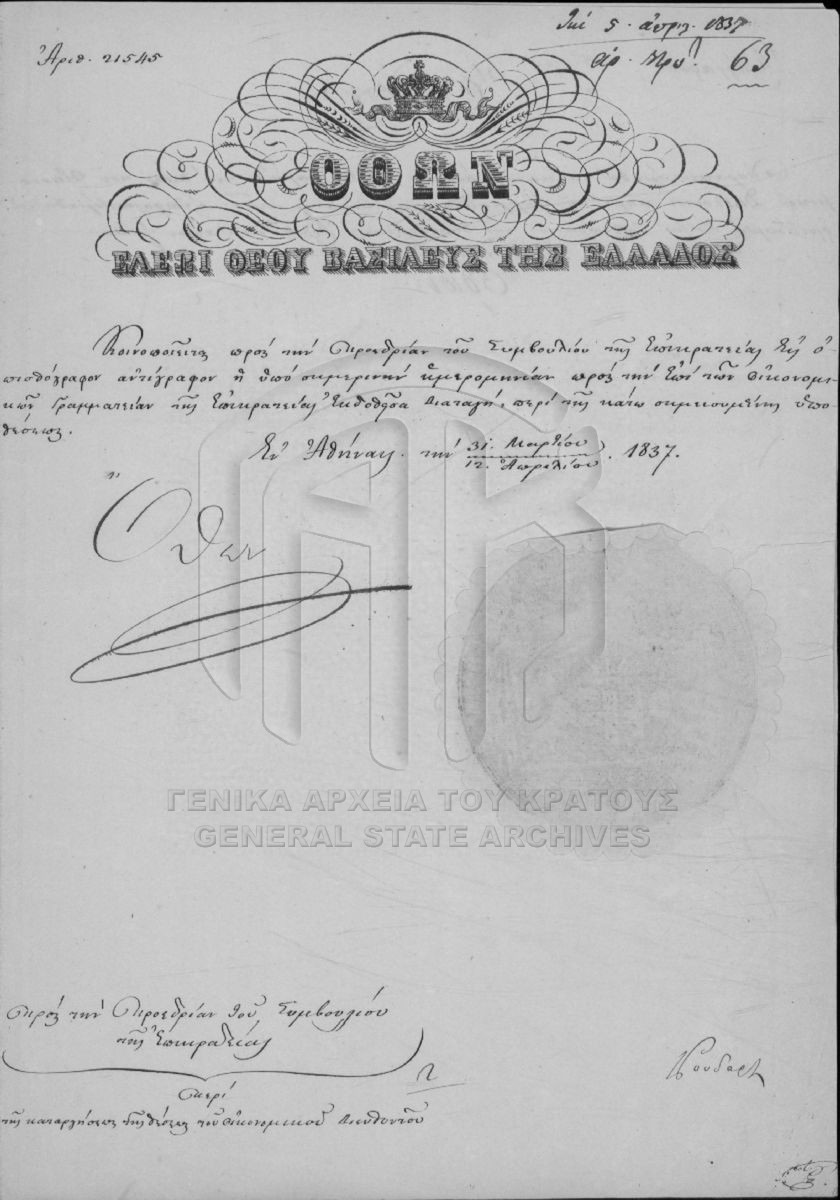 Ἀριθ. 21545
5. ἀπριλ. 1837
ἀρ. Πρω. 63
ΟΘΩΝ
ΕΛΕΩι ΘΕΟΥ ΒΑΣΙΛΕΥΣ ΤΗΣ ΕΛΛΑΔΟΣ
Κοινοποιεῖται πρὸς τὴν Προεδρίαν τοῦ Συμβουλίου τῆς Ἐπικρατείας εἰς ὀ
πισθόγραφον ἀντίγραφον ἡ ὑπὸ σημερινὴν ἡμερομηνίαν πρὸς τὴν ἐπὶ τῶν Οἰκονομι-
κῶν Γραμματείαν τῆς Ἐπικρατείας ἐκδοθεῖσα Διαταγή, περὶ τῆς κάτω σημειουμένης ὑπο
θέσεως.
Ἐν Ἀθήναις τὴν 31. Μαρτίου / 12. Ἀπριλίου. 1837.
Ὄθων
ΓΕΝΙΚΑ ΑΡΧΕΙΑ ΤΟΥ ΚΡΑΤΟΥΣ
GENERAL STATE ARCHIVES
Πρὸς τὴν Προεδρίαν τοῦ Συμβουλίου
τῆς Ἐπικρατείας
Περὶ
τῆς καταργήσεως τῆς θέσεως τοῦ Οἰκονομικοῦ Διευθυντοῦ